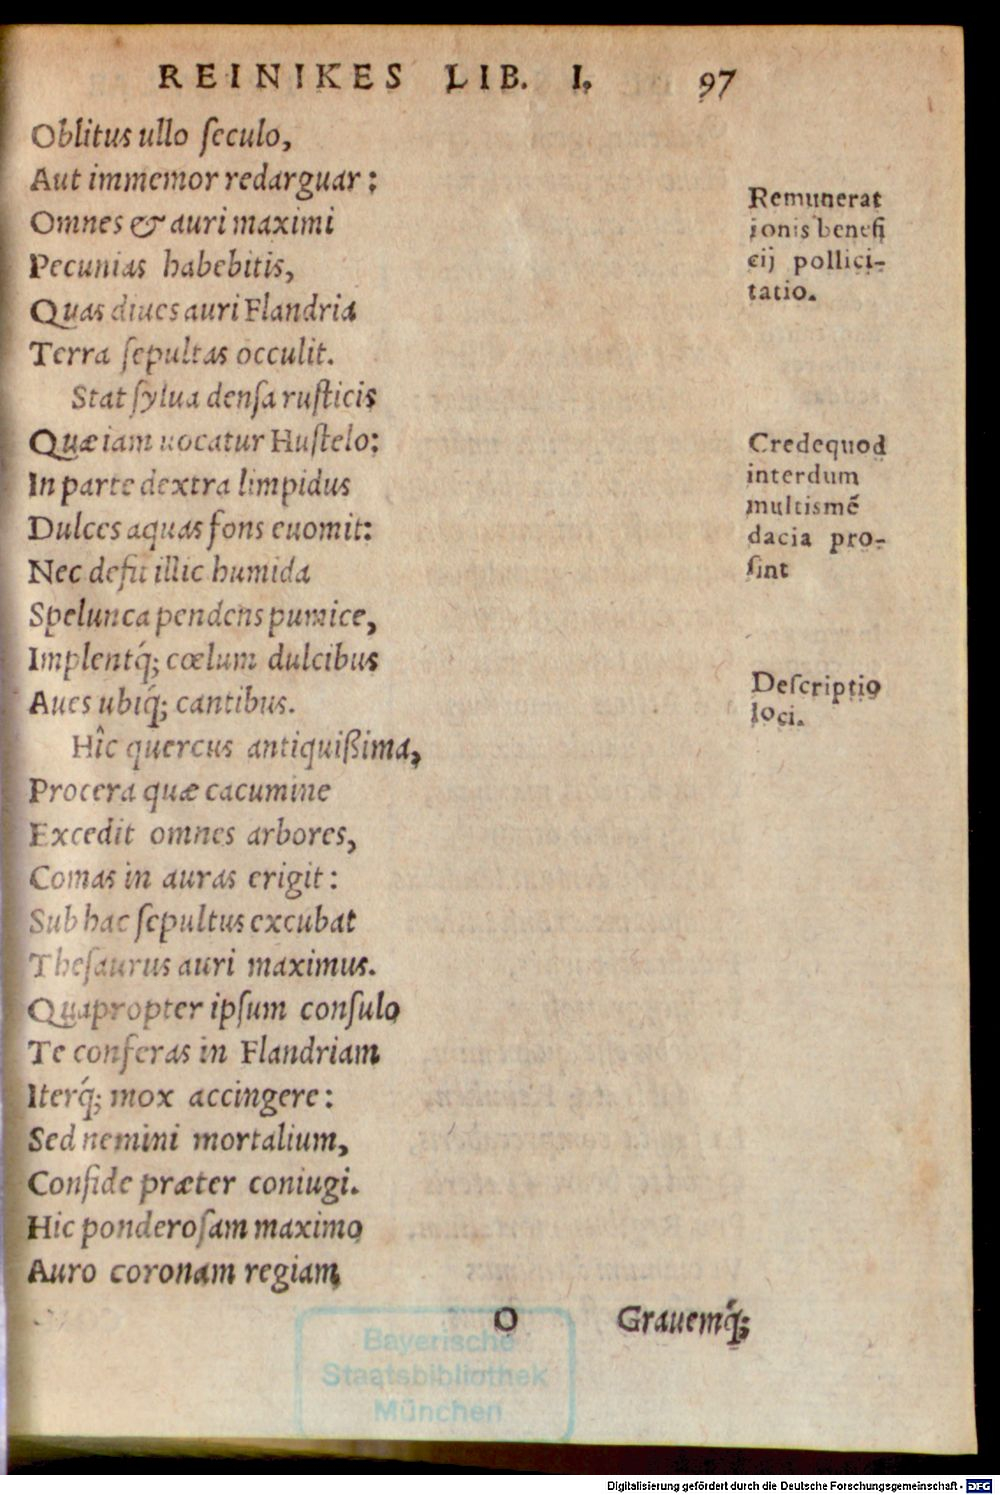 REINIKES LIB. I. 97
Oblitus ullo ſeculo,
Aut immemor redarguar:
Omnes & auri maximi
Pecunias habebitis,
Quas diues auri Flandria
Terra ſepultas occulit.
Stat ſylua denſa ruſticis
Quæ iam uocatur Huſtelo:
In parte dextra limpidus
Dulces aquas fons euomit:
Nec defit illic humida
Spelunca pendens pumice,
Implentq́; cœlum dulcibus
Aues ubiq́; cantibus.
Hîc quercus antiquißima,
Procera quæ cacumine
Excedit omnes arbores,
Comas in auras erigit:
Sub hac ſepultus excubat
Theſaurus auri maximus.
Quapropter ipſum conſulo
Te conferas in Flandriam
Iterq́; mox accingere:
Sed nemini mortalium,
Confide præter coniugi.
Hic ponderoſam maximo
Auro coronam regiam
Remunerat
ionis benefi
cij pollici-
tatio.
Crede quod
interdum
multis mẽ
dacia pro-
ſint
Deſcriptio
loci.
O Grauemq́;
Bayerische
Staatsbibliothek
München
Digitalisierung gefördert durch die Deutsche Forschungsgemeinschaft - DFG